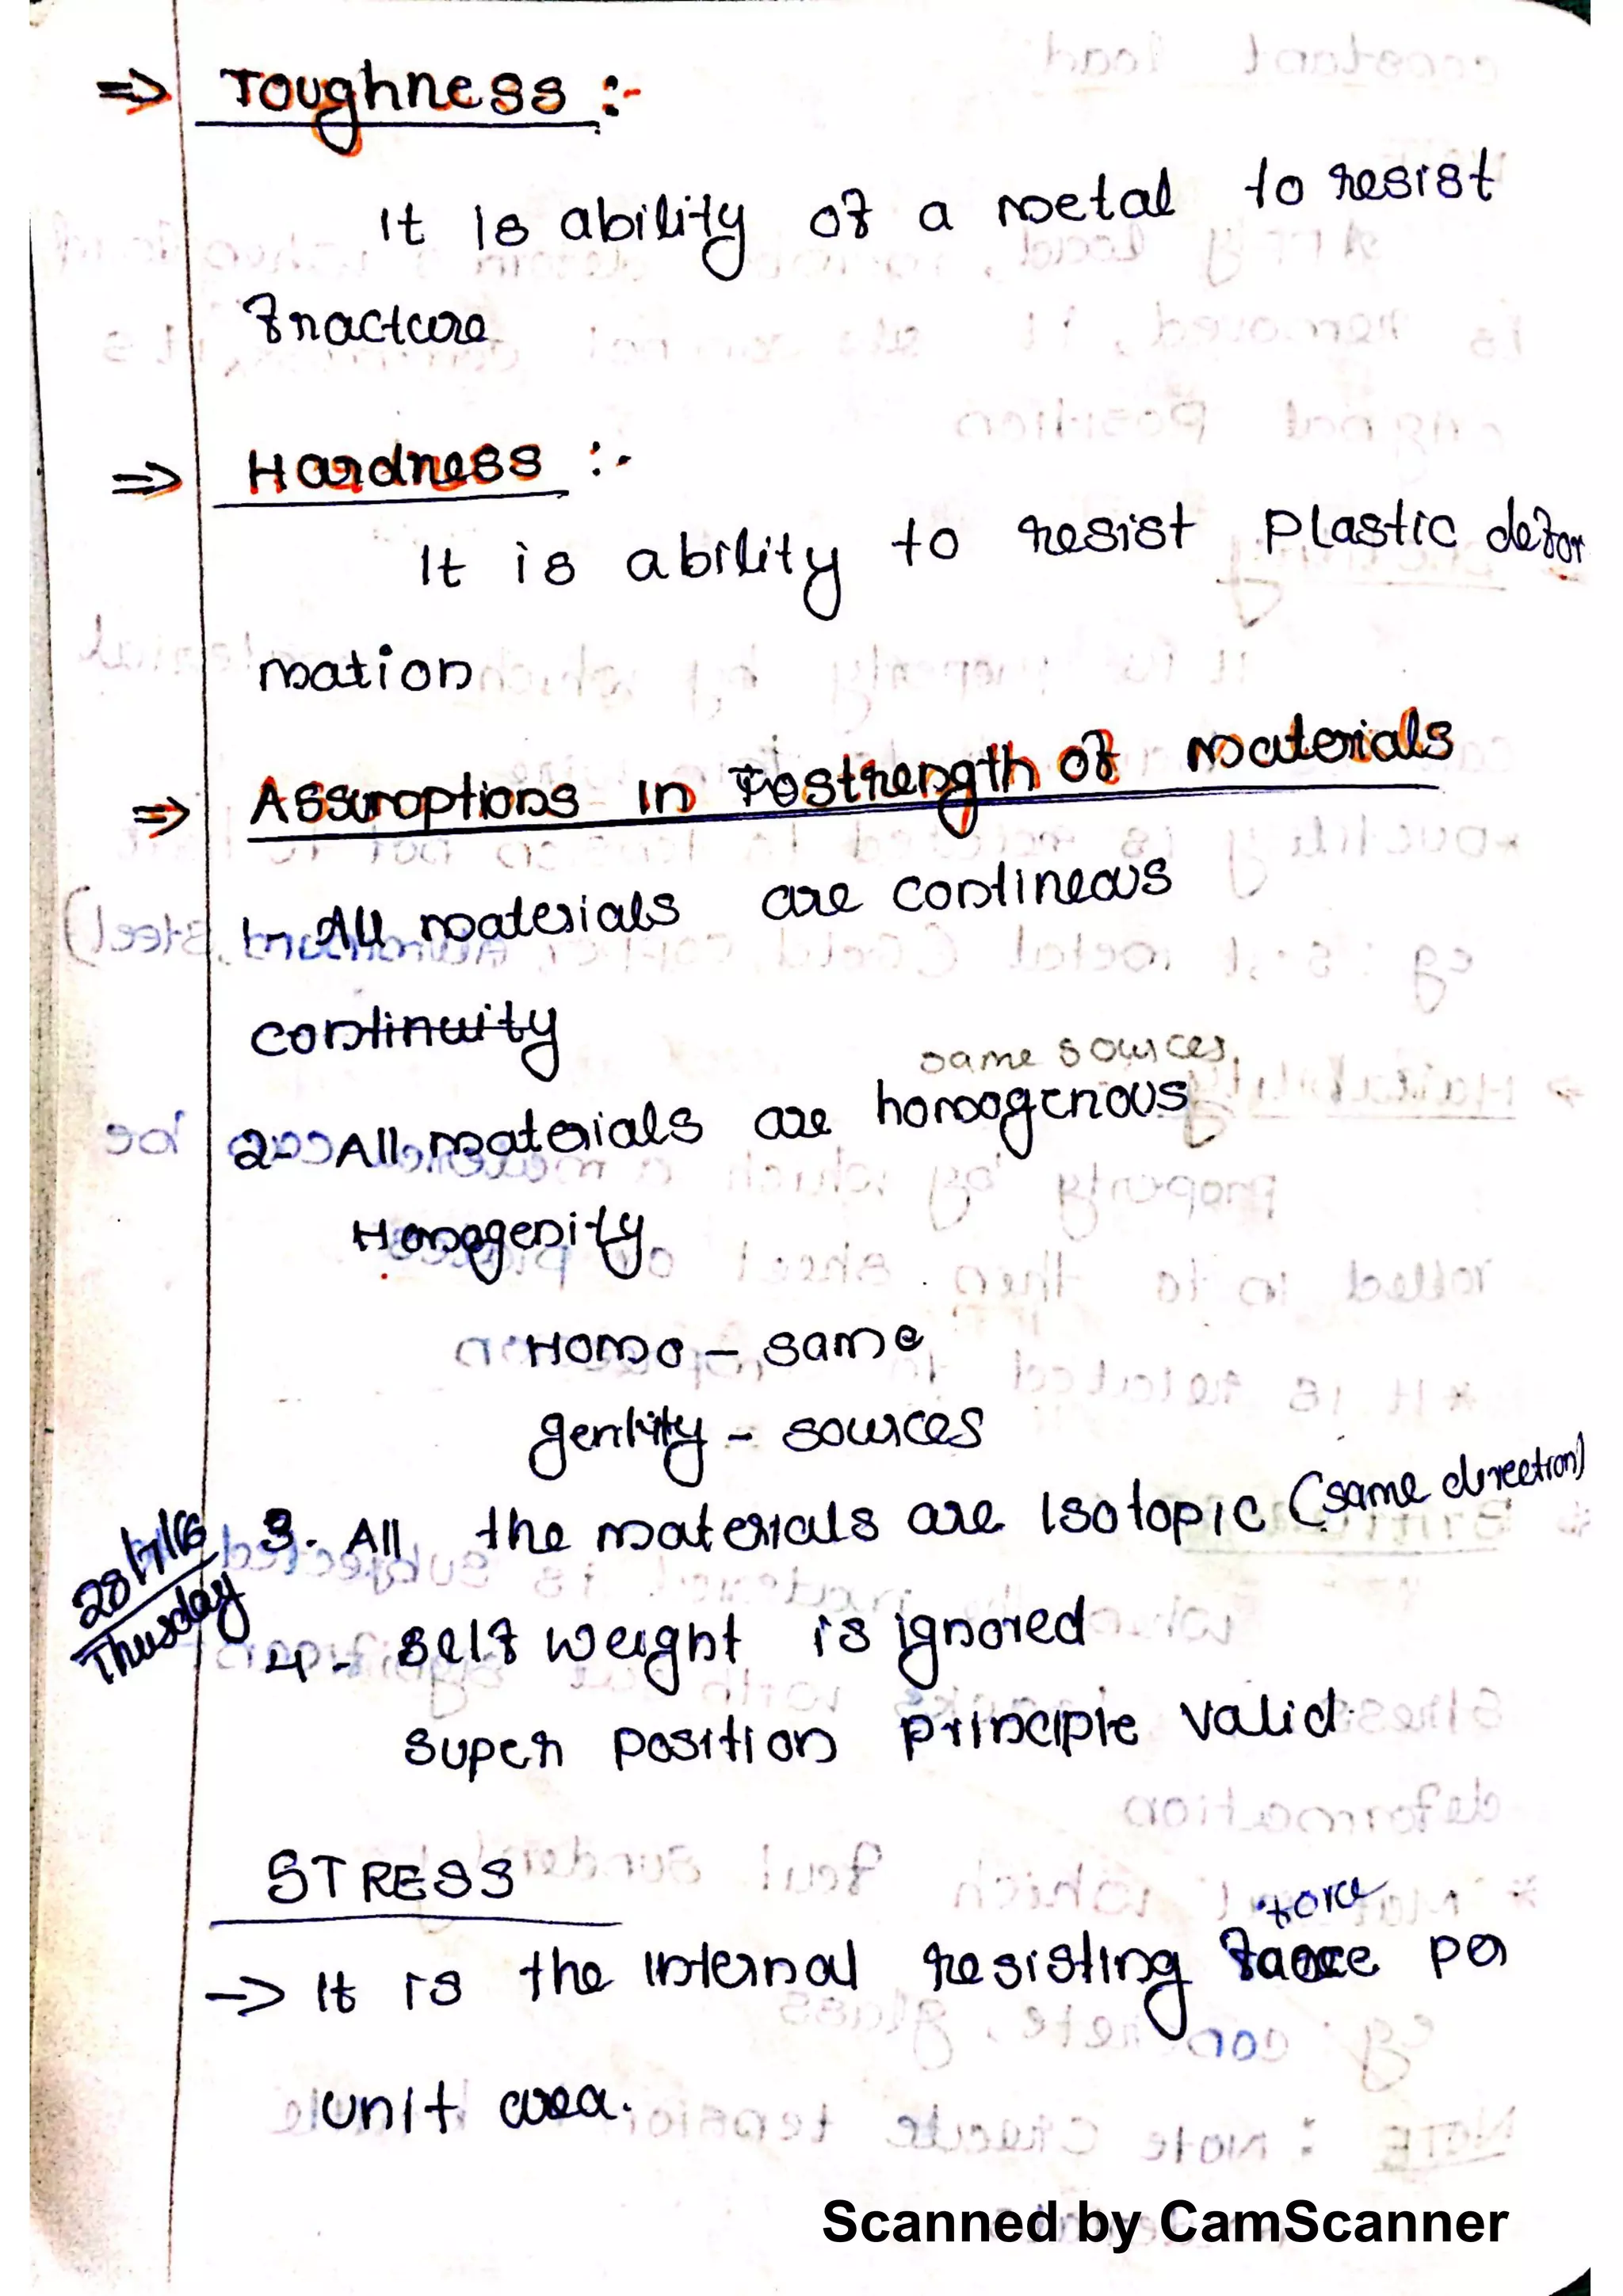 => Toughness :-
It is ability of a metal to resist
fracture
=> Hardness :-
It is ability to resist plastic defor
mation
=> Assumptions in strength of materials
1- All materials are contineous
continuity
same sources.
2- All materials are homogenous
Homogenity
Homo - same
genity - sources
3. All the materials are Isotopic (same direction)
28/7/16
Thusday
4- self weight is ignored
super position principle valid.
STRESS
force
-> It is the internal resisting force per
unit area.
Scanned by CamScanner